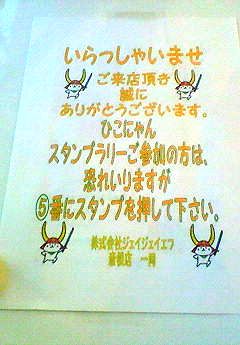 いらっしゃいませ
ご来店頂き
誠に
ありがとうございます。
ひこにゃん
スタンプラリーご参加の方は、
恐れいりますが
⑤番にスタンプを押して下さい。
株式会社ジェイジェイエフ
彦根店 一同